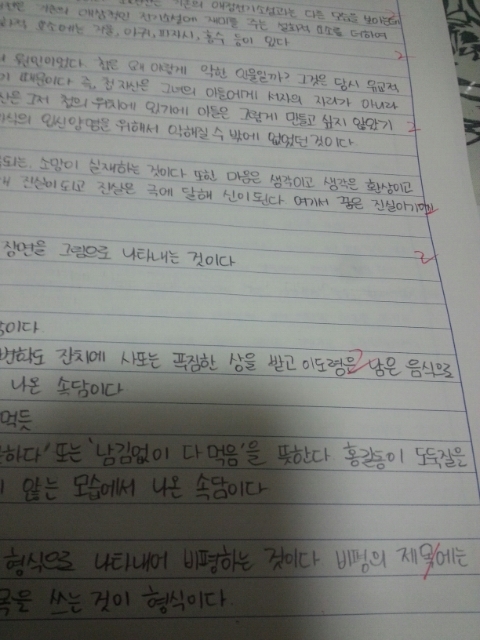 기존의 대상적인 전기소설에 재미를 주는 설화적 요소를 더하여
요소에는 거울, 아귀, 피지시, 홍수 등이 있다
원인이었다. 첩은 왜 이렇게 악한 인물일까? 그것은 당시 유교적
때문이다 즉, 첩 자신은 그녀의 아들에게 서자의 자리가 아니라
그저 첩의 위치에 있기에 아들은 그렇게 만들고 싶지 않았기
입신양명을 위해서 악해질 수 밖에 없었던 것이다
되는, 소망이 실재하는 것이다 또한 마음은 생각이고 생각은 환상이고
진실이 되고 진실은 극에 달해 신이 된다 여기서 꿈은 진실이기에
장면을 그림으로 나타내는 것이다
이다.
변학도 잔치에 사또는 푹짐한 상을 받고 이도령은 남은 음식으로
나온 속담이다
먹듯
하다' 또는 '남김없이 다 먹음'을 뜻한다 홍길동이 도둑질을
않는 모습에서 나온 속담이다
형식으로 나타내어 비평하는 것이다 비평의 제목에는
을 쓰는 것이 형식이다.